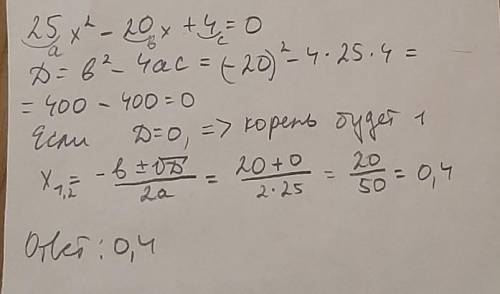 25x² - 20x + 4 = 0
a в c
D = в² - 4ac = (-20)² - 4·25·4 =
= 400 - 400 = 0
Если D=0, => корень будет 1
x₁,₂ = (-в ± √D)/2a = (20+0)/(2·25) = 20/50 = 0,4
Ответ: 0,4